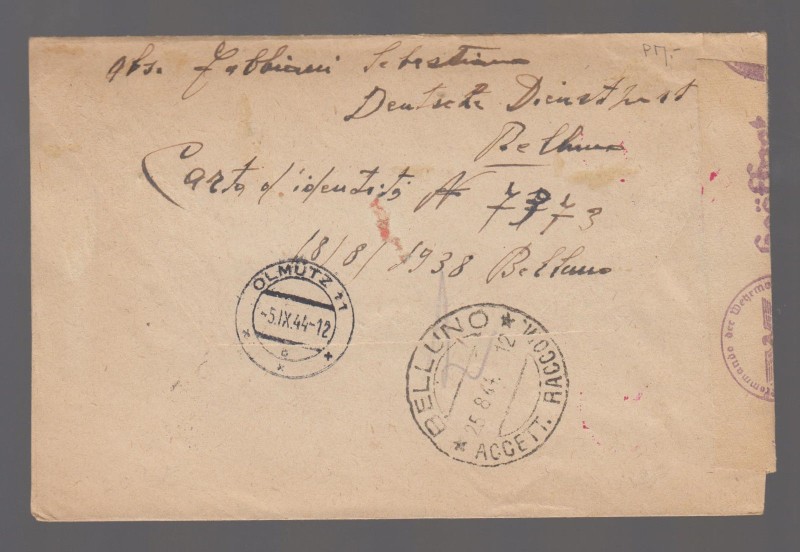 PM.-
Abs. Fabbiani Sebastiano
Deutsche Dienstpost
Belluno
Carta d'identità N
18/8/1938 Belluno
OLMÜTZ 11
-5.IX.44-12
BELLUNO
25.8.44. 12
ACCETT. RACCOM.
Geöffnet
kommando der Wehrma